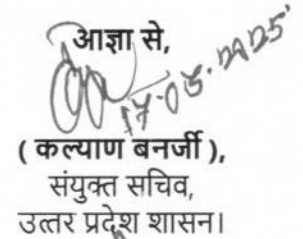 आज्ञा से,
17.05.2025
( कल्याण बनर्जी ),
संयुक्त सचिव,
उत्तर प्रदेश शासन।